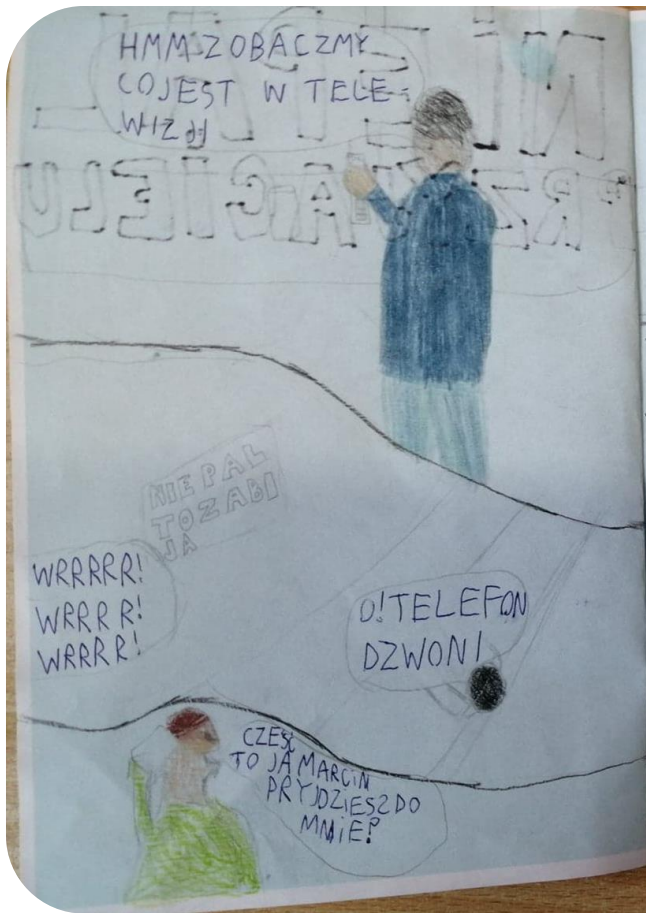 HMM ZOBACZMY
COJEST W TELE-
WIZJI
NIE PAL
TOZABI
JA
WRRRRR!
WRRRR!
WRRRR!
O! TELEFON
DZWONI
CZEŚĆ
TO JA MARCIN
PRYJDZIESZ DO
MNIE?